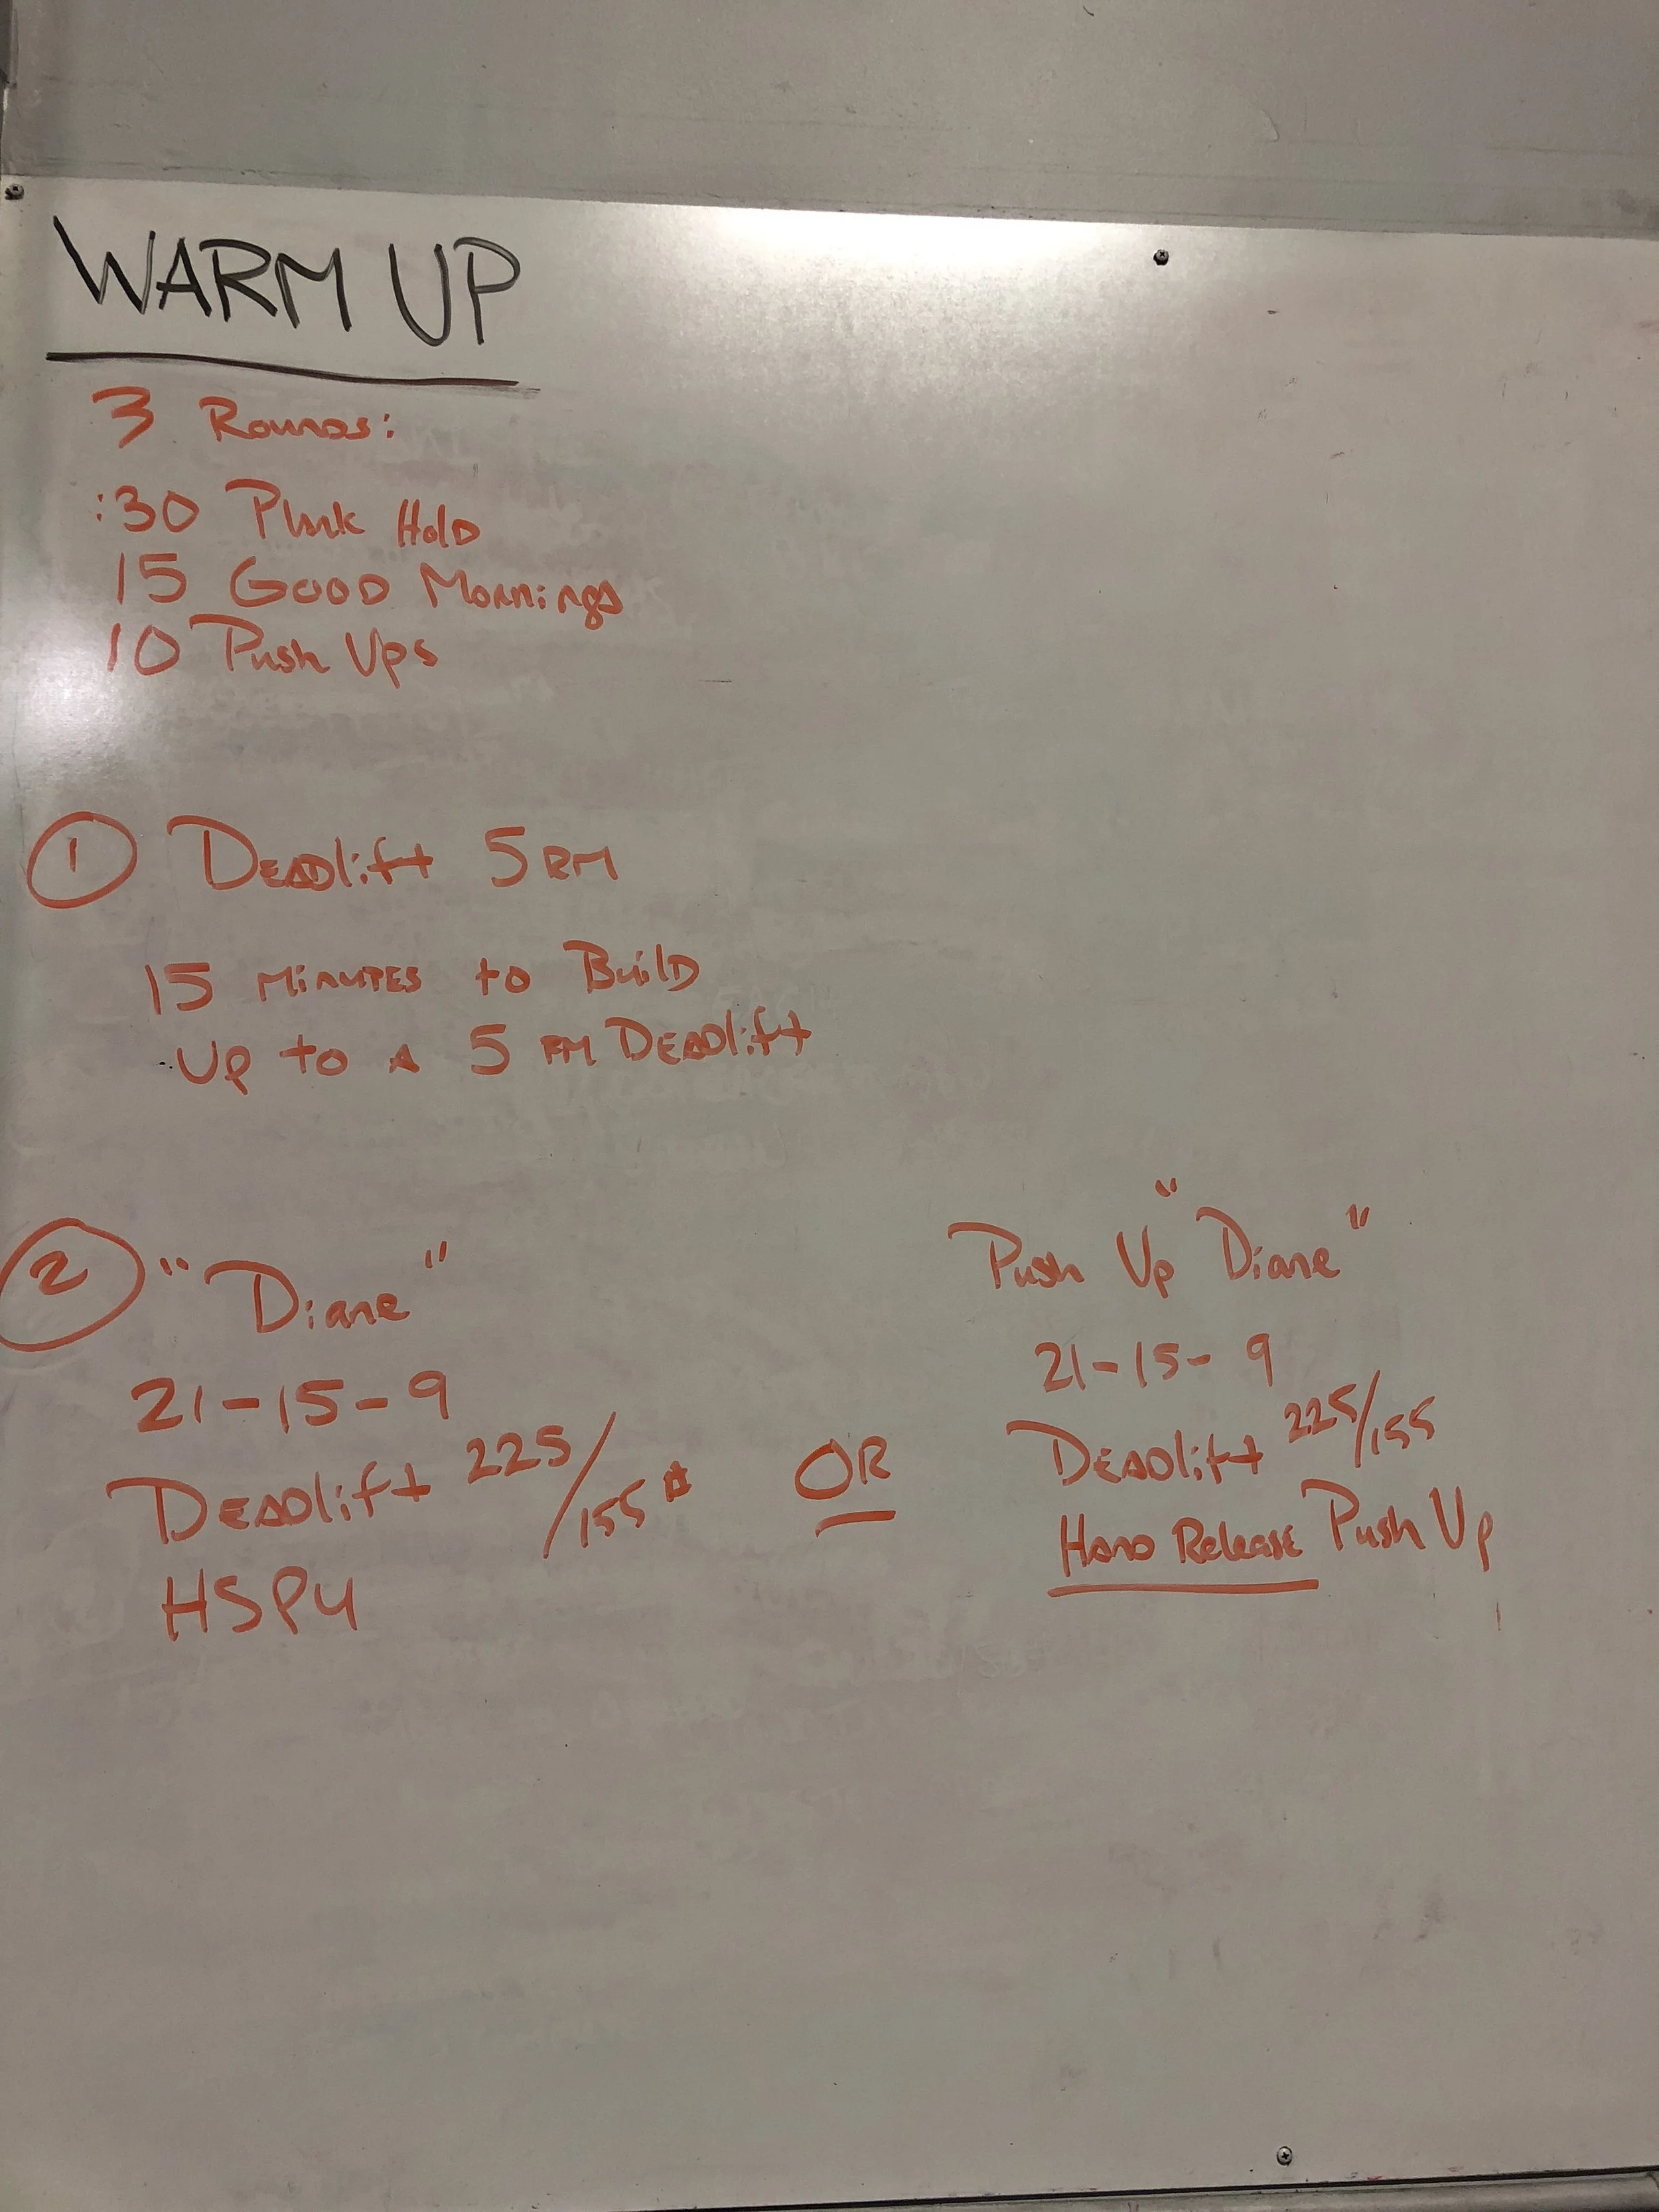 WARM UP
3 Rounds:
:30 Plank Hold
15 Good Mornings
10 Push Ups
1 Deadlift 5 RM
15 Minutes to Build
Up to A 5 RM Deadlift
2 "Diane"
21-15-9
Deadlift 225/155#
HSPU
OR
Push Up "Diane"
21-15-9
Deadlift 225/155
Hand Release Push Up